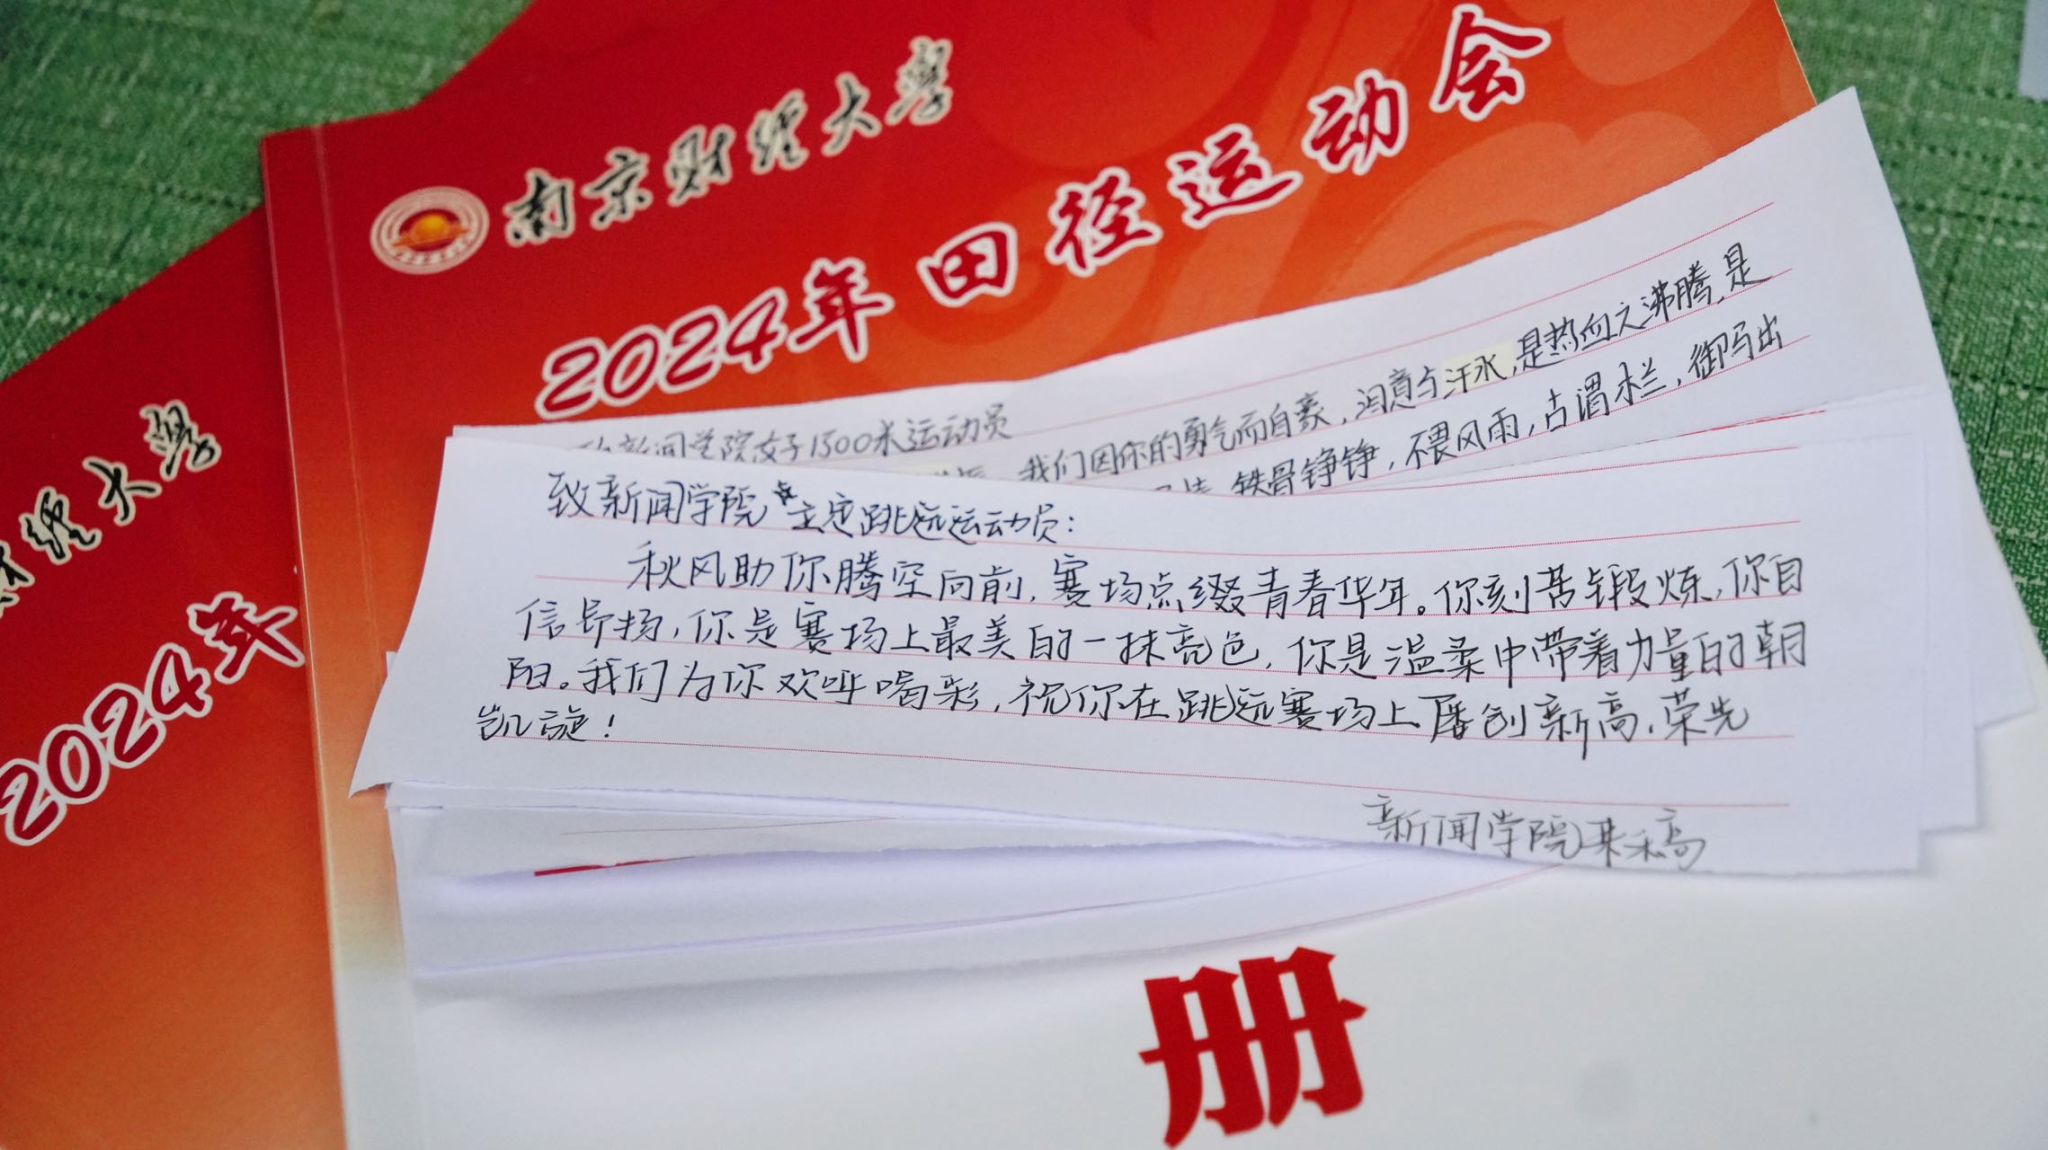 南京财经大学
2024年田径运动会
财经大学
2024年
新闻学院女子1500米运动员
我们因你的勇气而自豪，泪意与汗水，是热血之沸腾，是
铁骨铮铮，不畏风雨，古谓栏，御马出
致新闻学院 立定跳远运动员：
秋风助你腾空向前，赛场点缀青春华年。你刻苦锻炼，你自
信昂扬，你是赛场上最美的一抹亮色，你是温柔中带着力量的朝
阳。我们为你欢呼喝彩，祝你在跳远赛场上屡创新高，荣光
凯旋！
新闻学院某稿
册